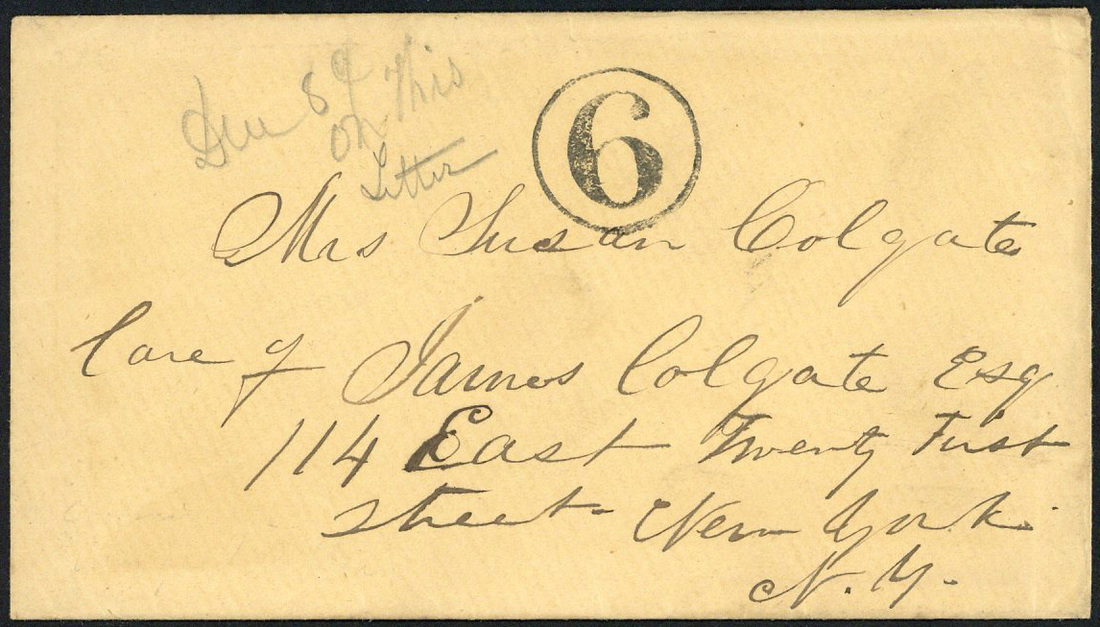 Due 8¢
on This
Letter
6
Mrs Susan Colgate
Care of James Colgate Esq
114 East Twenty First
Street New York
N.Y.